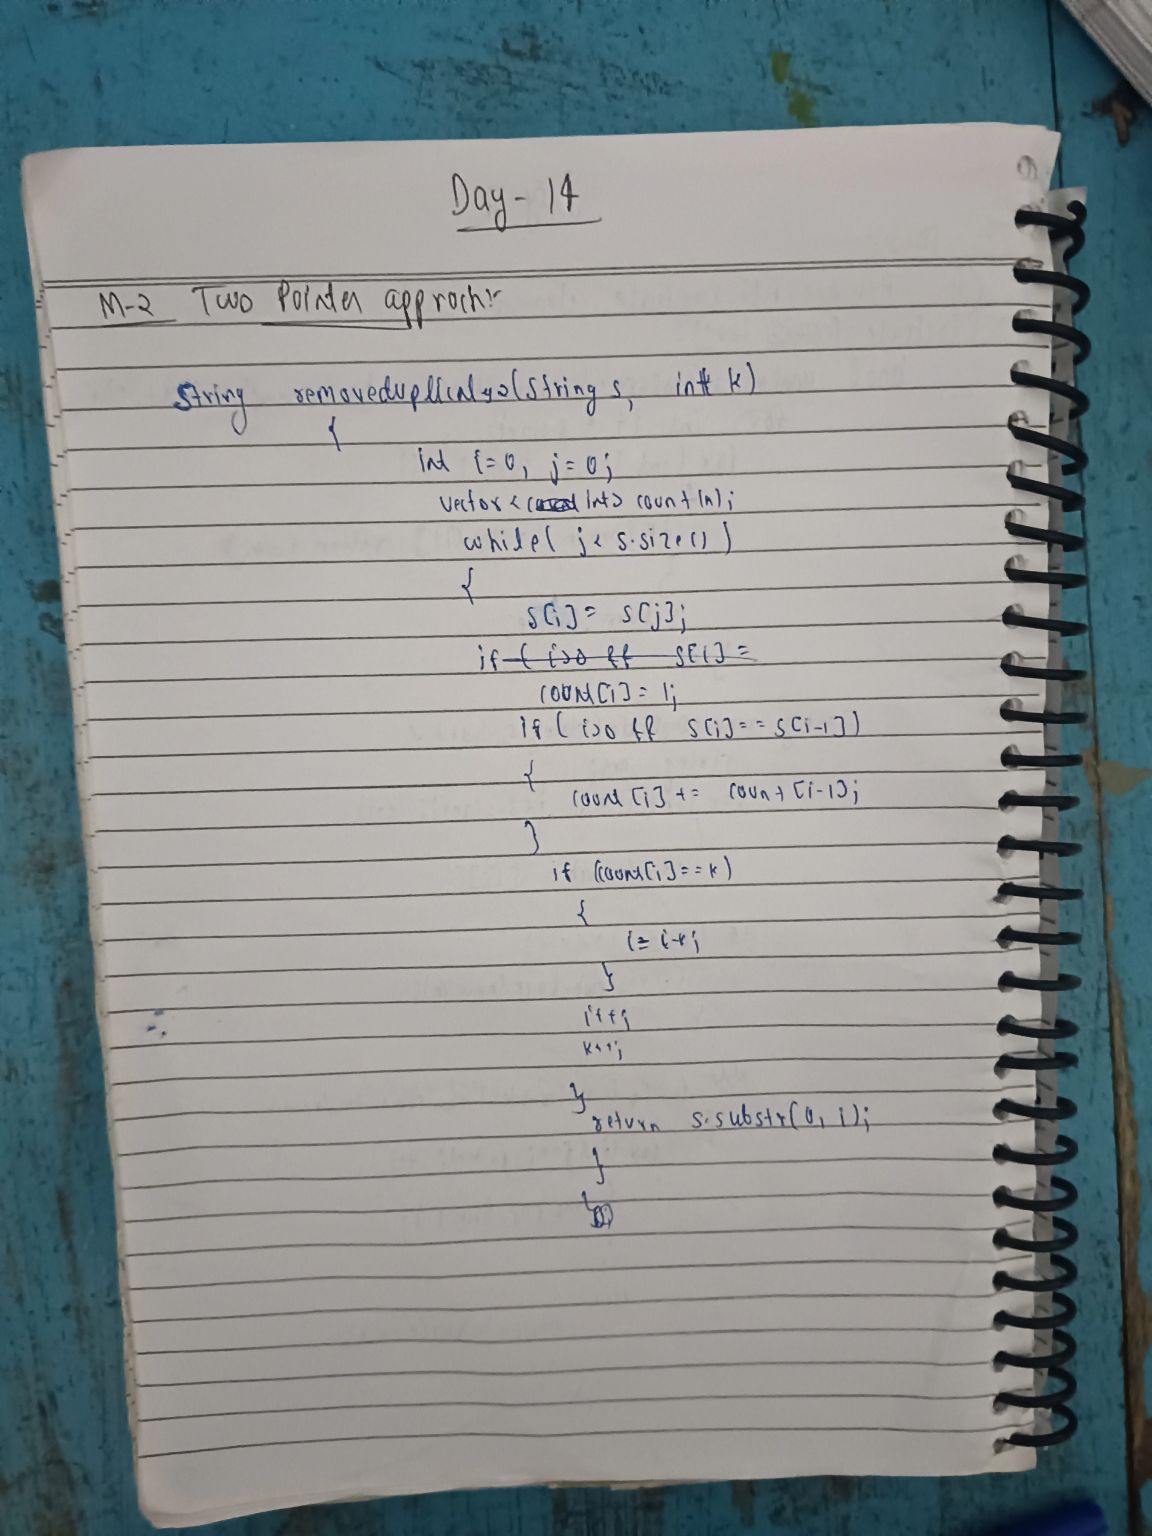 Day - 14
M-2 Two Pointer approch:-
String removeduplicates(String s, int k)
{
int i=0, j=0;
vector < int> count(n);
while( j< s.size() )
{
s[i] = s[j];
if ( i>0 && s[i] =
count[i] = 1;
if ( i>0 && s[i] == s[i-1])
{
count [i] += count [i-1];
}
if (count[i]==k)
{
i= i-k;
}
i++;
k++;
}
return s.substr(0, i);
}